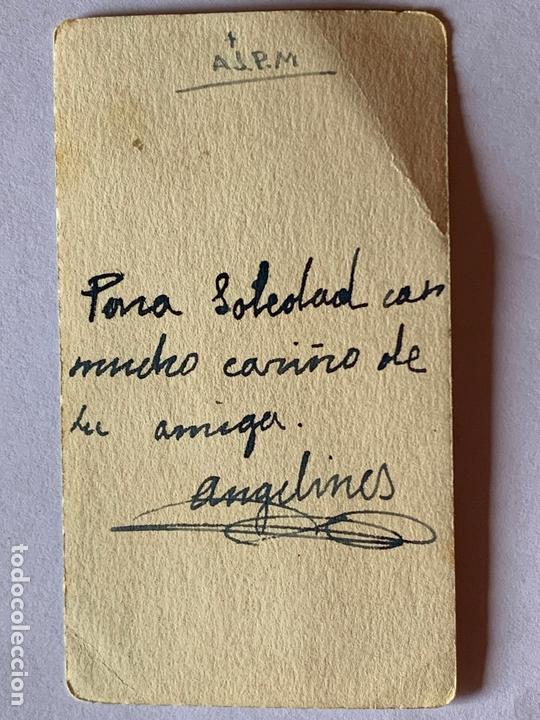 +
A.J.P.M
Para Soledad con
mucho cariño de
tu amiga.
Angelines
todocoleccion
todocoleccion.net